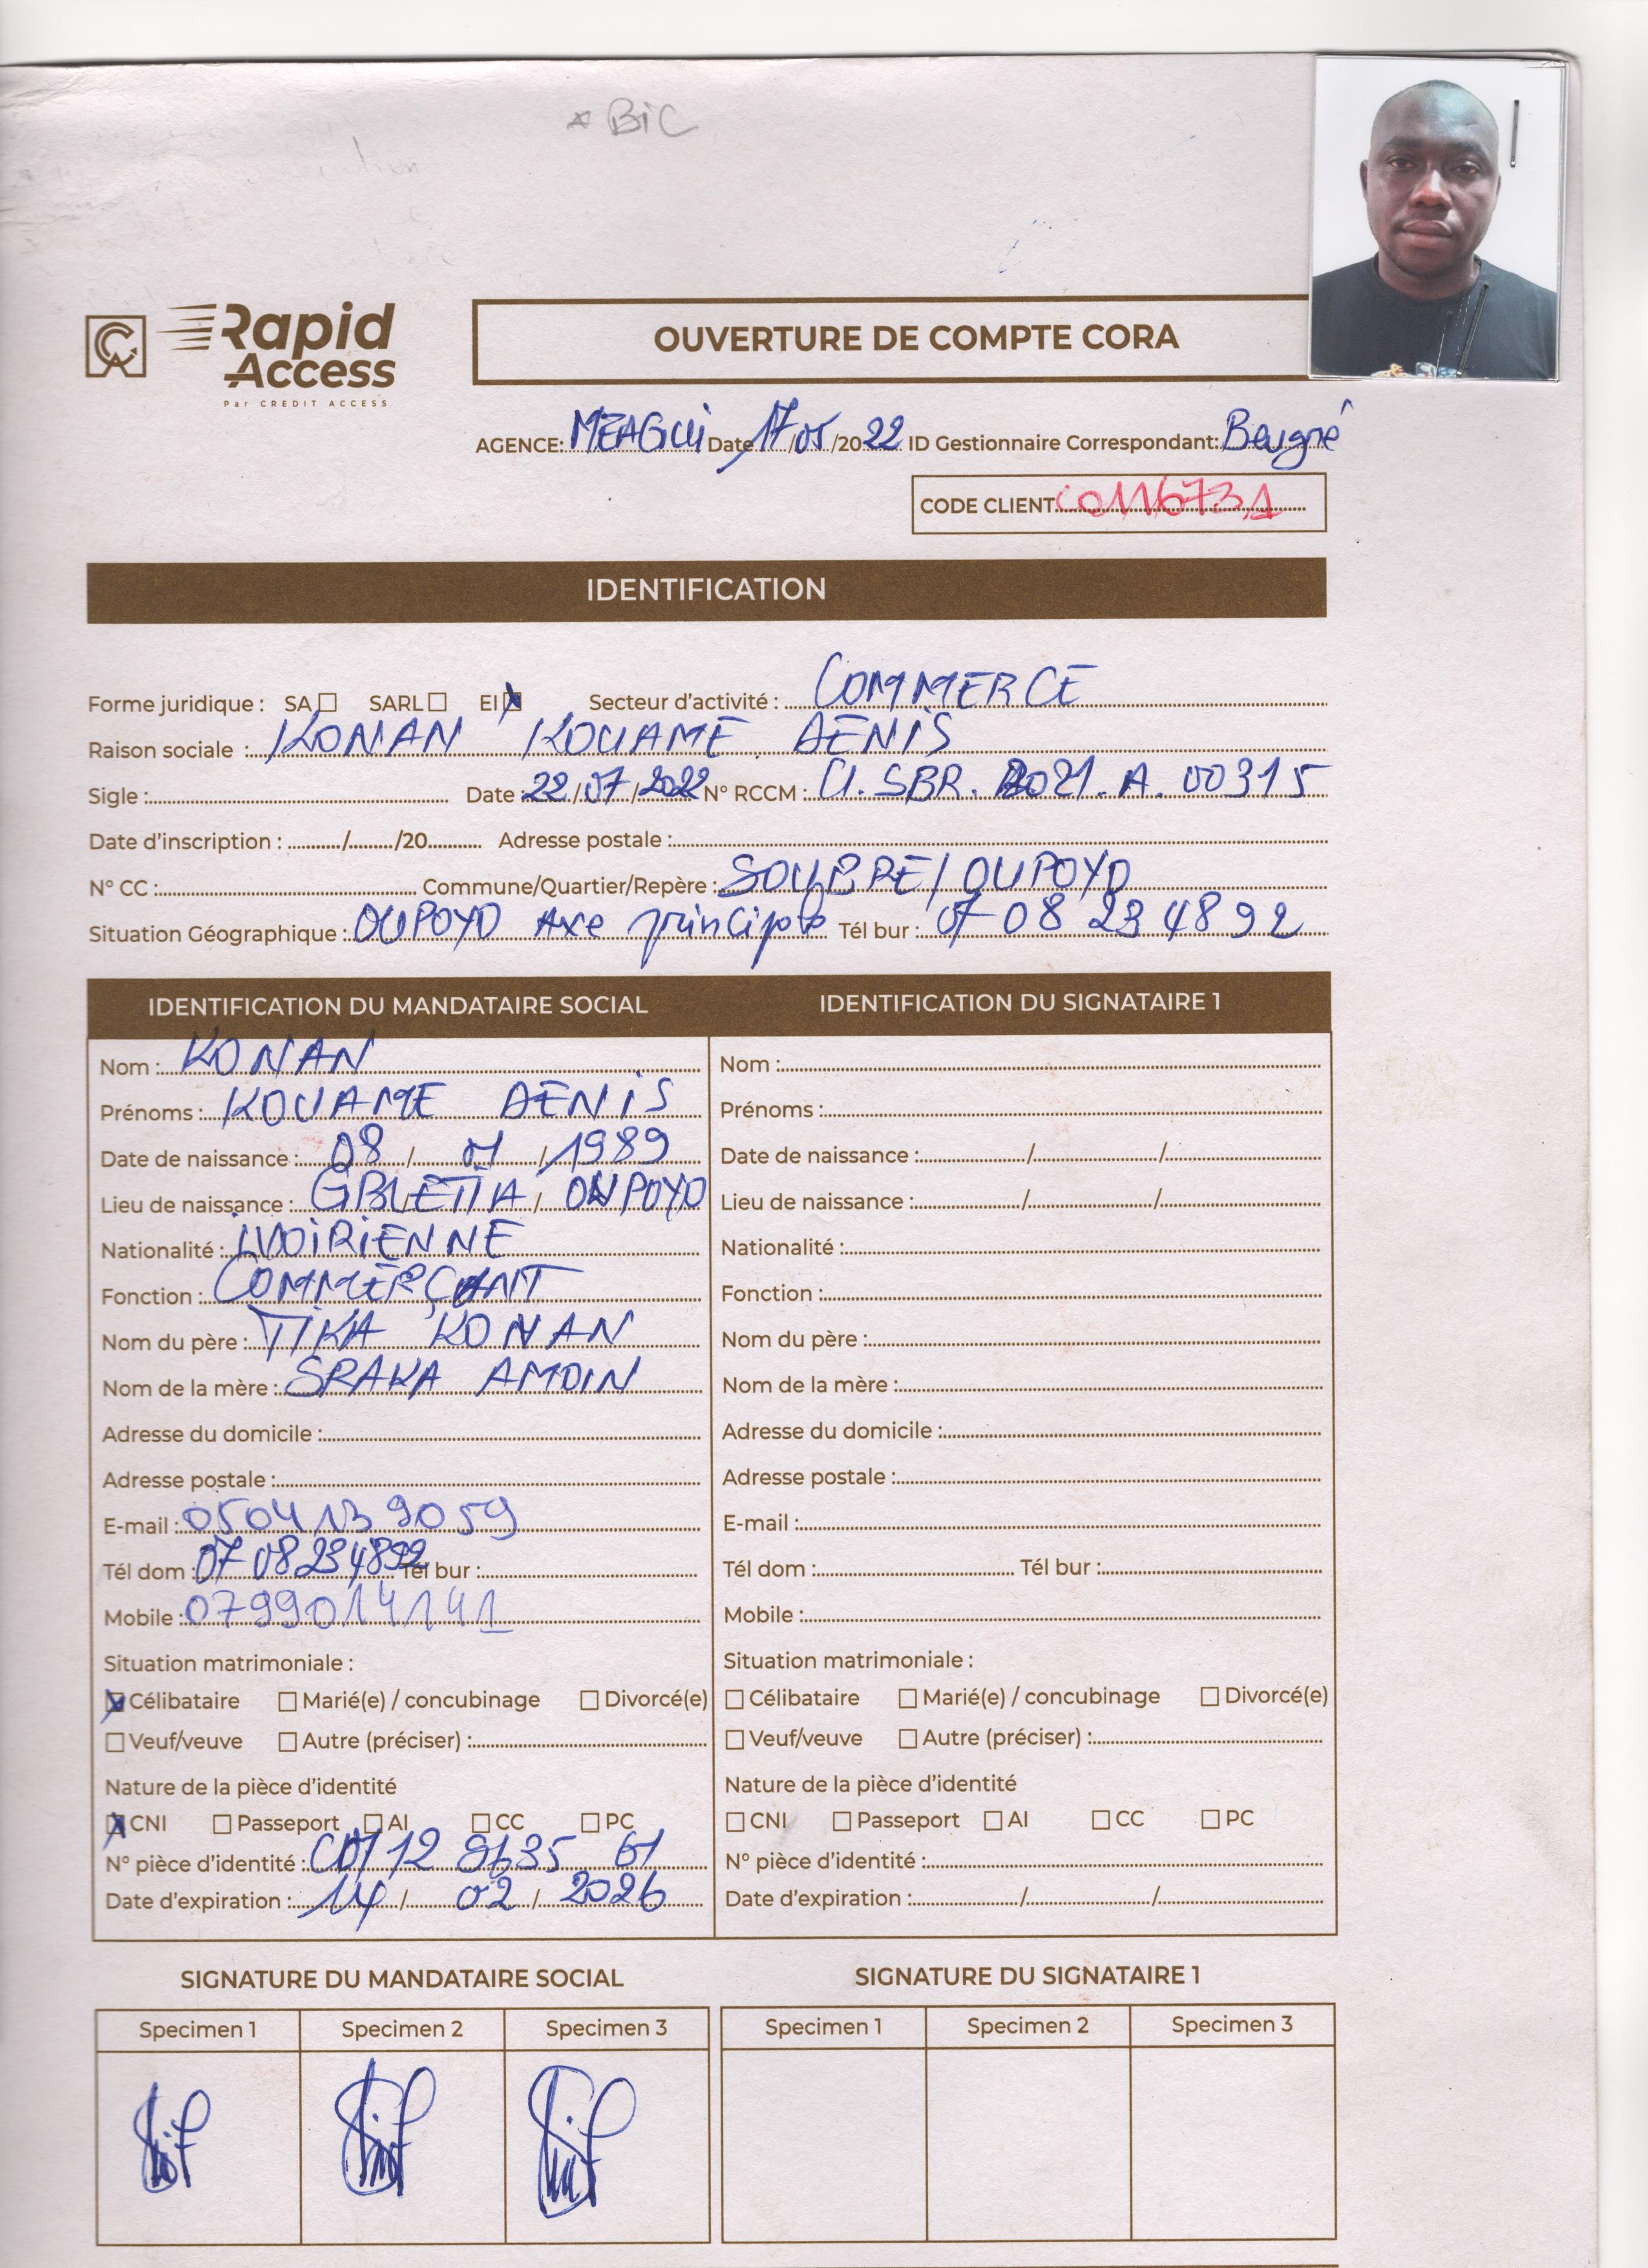 * BiC
Rapid
Access
Par CREDIT ACCESS
OUVERTURE DE COMPTE CORA
AGENCE: MEAGUi Date 17/05/2022 ID Gestionnaire Correspondant: Beugré
CODE CLIENT C0116731
IDENTIFICATION
Forme juridique : SA☐ SARL☐ EI☒ Secteur d'activité : COMMERCE
Raison sociale : KONAN KOUAME DENiS
Sigle : Date : 22/07/2022 N° RCCM : CI.SBR.2021.A.00315
Date d'inscription : ........../........./20.......... Adresse postale :
N° CC : Commune/Quartier/Repère : SOUBRE/OUPOYO
Situation Géographique : OUPOYO Axe principale Tél bur : 07 08 23 48 92
IDENTIFICATION DU MANDATAIRE SOCIAL
Nom : KONAN
Prénoms : KOUAME DENiS
Date de naissance : 08/01/1989
Lieu de naissance : GBLETIA/OUPOYO
Nationalité : IVOiRiENNE
Fonction : COMMERÇANT
Nom du père : TIKA KONAN
Nom de la mère : SRAKA AMOIN
Adresse du domicile :
Adresse postale :
E-mail : 0504139059
Tél dom : 07 08234892 Tél bur :
Mobile : 0799014141
Situation matrimoniale :
☒Célibataire ☐Marié(e) / concubinage ☐Divorcé(e)
☐Veuf/veuve ☐Autre (préciser) :
Nature de la pièce d'identité
☒CNI ☐Passeport ☐AI ☐CC ☐PC
N° pièce d'identité :
Date d'expiration : 14/02/2026
IDENTIFICATION DU SIGNATAIRE 1
Nom :
Prénoms :
Date de naissance : / /
Lieu de naissance : / /
Nationalité :
Fonction :
Nom du père :
Nom de la mère :
Adresse du domicile :
Adresse postale :
E-mail :
Tél dom : Tél bur :
Mobile :
Situation matrimoniale :
☐Célibataire ☐Marié(e) / concubinage ☐Divorcé(e)
☐Veuf/veuve ☐Autre (préciser) :
Nature de la pièce d'identité
☐CNI ☐Passeport ☐AI ☐CC ☐PC
N° pièce d'identité :
Date d'expiration : / /
SIGNATURE DU MANDATAIRE SOCIAL
Specimen 1 Specimen 2 Specimen 3
SIGNATURE DU SIGNATAIRE 1
Specimen 1 Specimen 2 Specimen 3